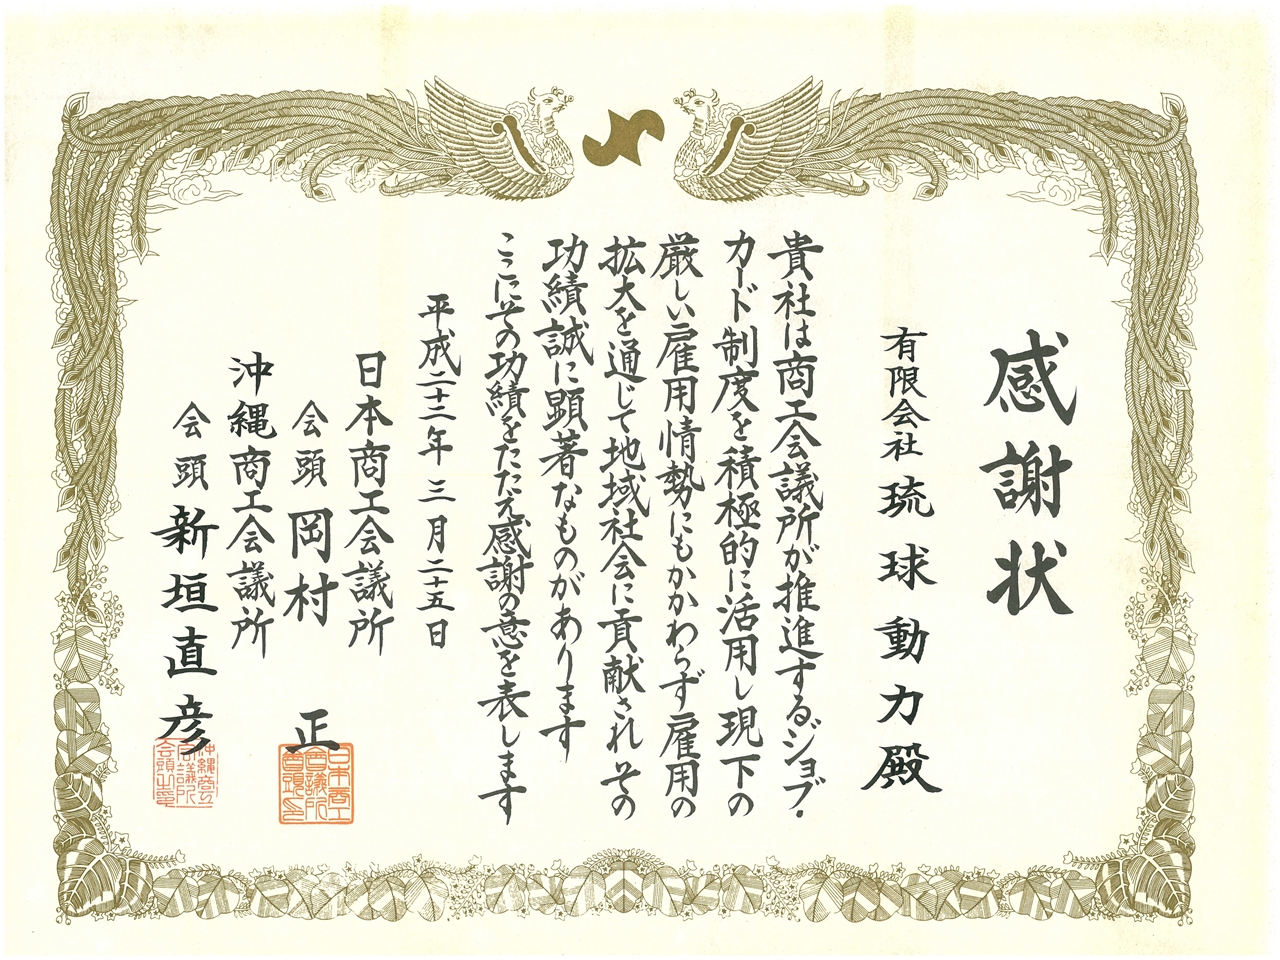 感謝状
有限会社 琉球動力殿
貴社は商工会議所が推進するジョブ・
カード制度を積極的に活用し現下の
厳しい雇用情勢にもかかわらず雇用の
拡大を通じて地域社会に貢献されその
功績誠に顕著なものがあります
ここにその功績をたたえ感謝の意を表します
平成二十二年三月二十五日
日本商工会議所
会頭 岡村 正
沖縄商工会議所
会頭 新垣直彦
日本商工会議所会頭之印
沖縄商工会議所会頭之印